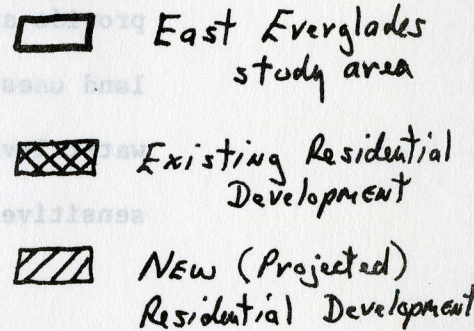 East Everglades
study area
Existing Residential
Development
New (Projected)
Residential Development